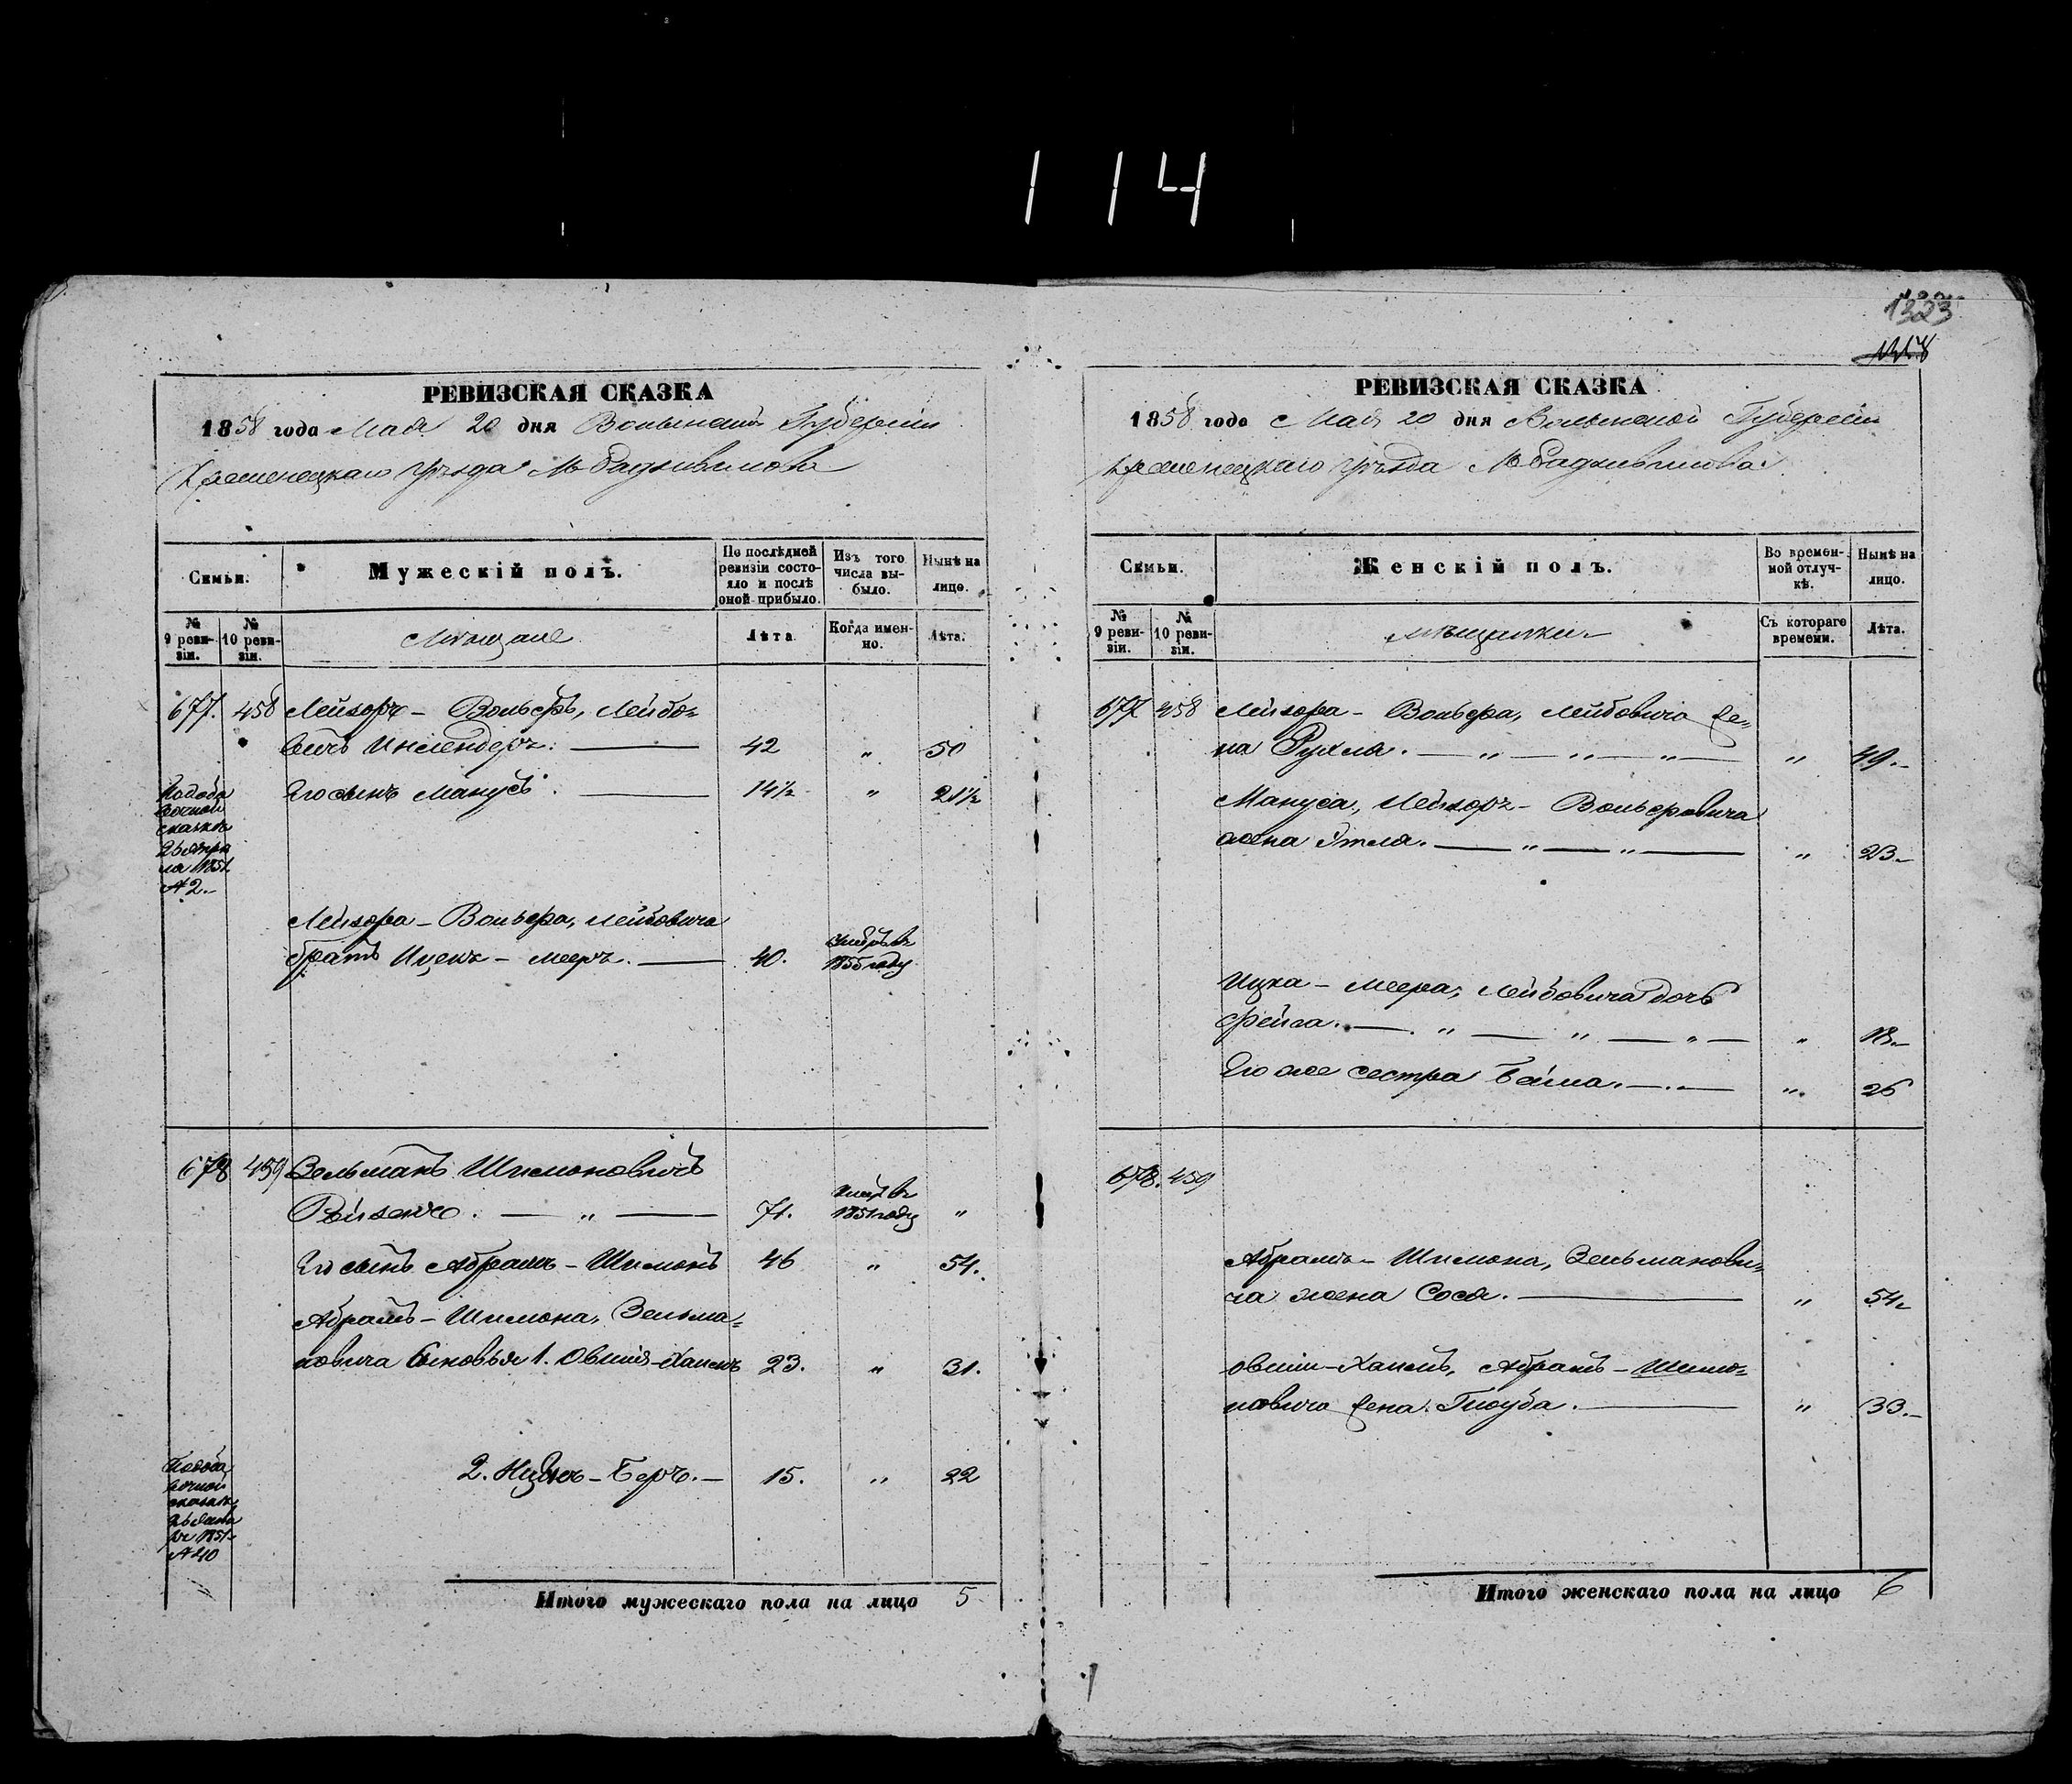 114
РЕВИЗСКАЯ СКАЗКА
1858 года Мая 20 дня Волынской Губернии
Кременецкаго уѣзда М Радзивилова
Семьи.
Мужескій полъ.
По послѣдней ревизіи состояло и послѣ оной прибыло.
Изъ того числа выбыло.
Нынѣ на лицо.
№ 9 ревизіи.
№ 10 ревизіи.
Мѣщане
Лѣта
Когда именно.
Лѣта.
677. 458 Лейзоръ - Вольфъ, Лейбо=
вичъ 42 " 50
Его сынъ Манусъ. 14½ " 21½
сказкѣ
1851
№ 2.
Лейзора - Вольфа, Лейбовича
братъ Ицекъ - Мееръ. 40. умеръ въ
1855 году
678 459 Зельманъ Шимоновичъ
Ройзенъ. " 71. умеръ въ
1851 году "
Его сынъ Абрамъ - Шимонъ 46 " 54.
Абрамъ - Шимона, Зельма=
новича сыновья 1. Овшія - Хаимъ 23. " 31.
2. Ицекъ - Беръ. 15. " 22
1851
№ 210
Итого мужескаго пола на лицо 5
1323
РЕВИЗСКАЯ СКАЗКА
1858 года Мая 20 дня Волынской Губерніи
Кременецкаго уѣзда М Радзивилова.
Семьи.
Женскій полъ.
Во временной отлучкѣ.
Нынѣ на лицо.
№ 9 ревизіи.
№ 10 ревизіи.
мѣщанки
Съ котораго времени.
Лѣта.
677 458 Лейзора - Вольфа, Лейбовича же=
на Рухля. " " " " 49.
Мануса, Лейзоръ - Вольфовича
жена Этля. " " " 23.
Ицка - Меера, Лейбовича дочь
Фейга. " " " " 18.
Его же сестра Бейла. " 26
678. 459
Абрамъ - Шимона, Зельманови=
ча жена Сося. " 54.
Овшіи - Хаимъ, Абрамъ - Шимо=
новича жена Гнюба. " 33.
Итого женскаго пола на лицо 6